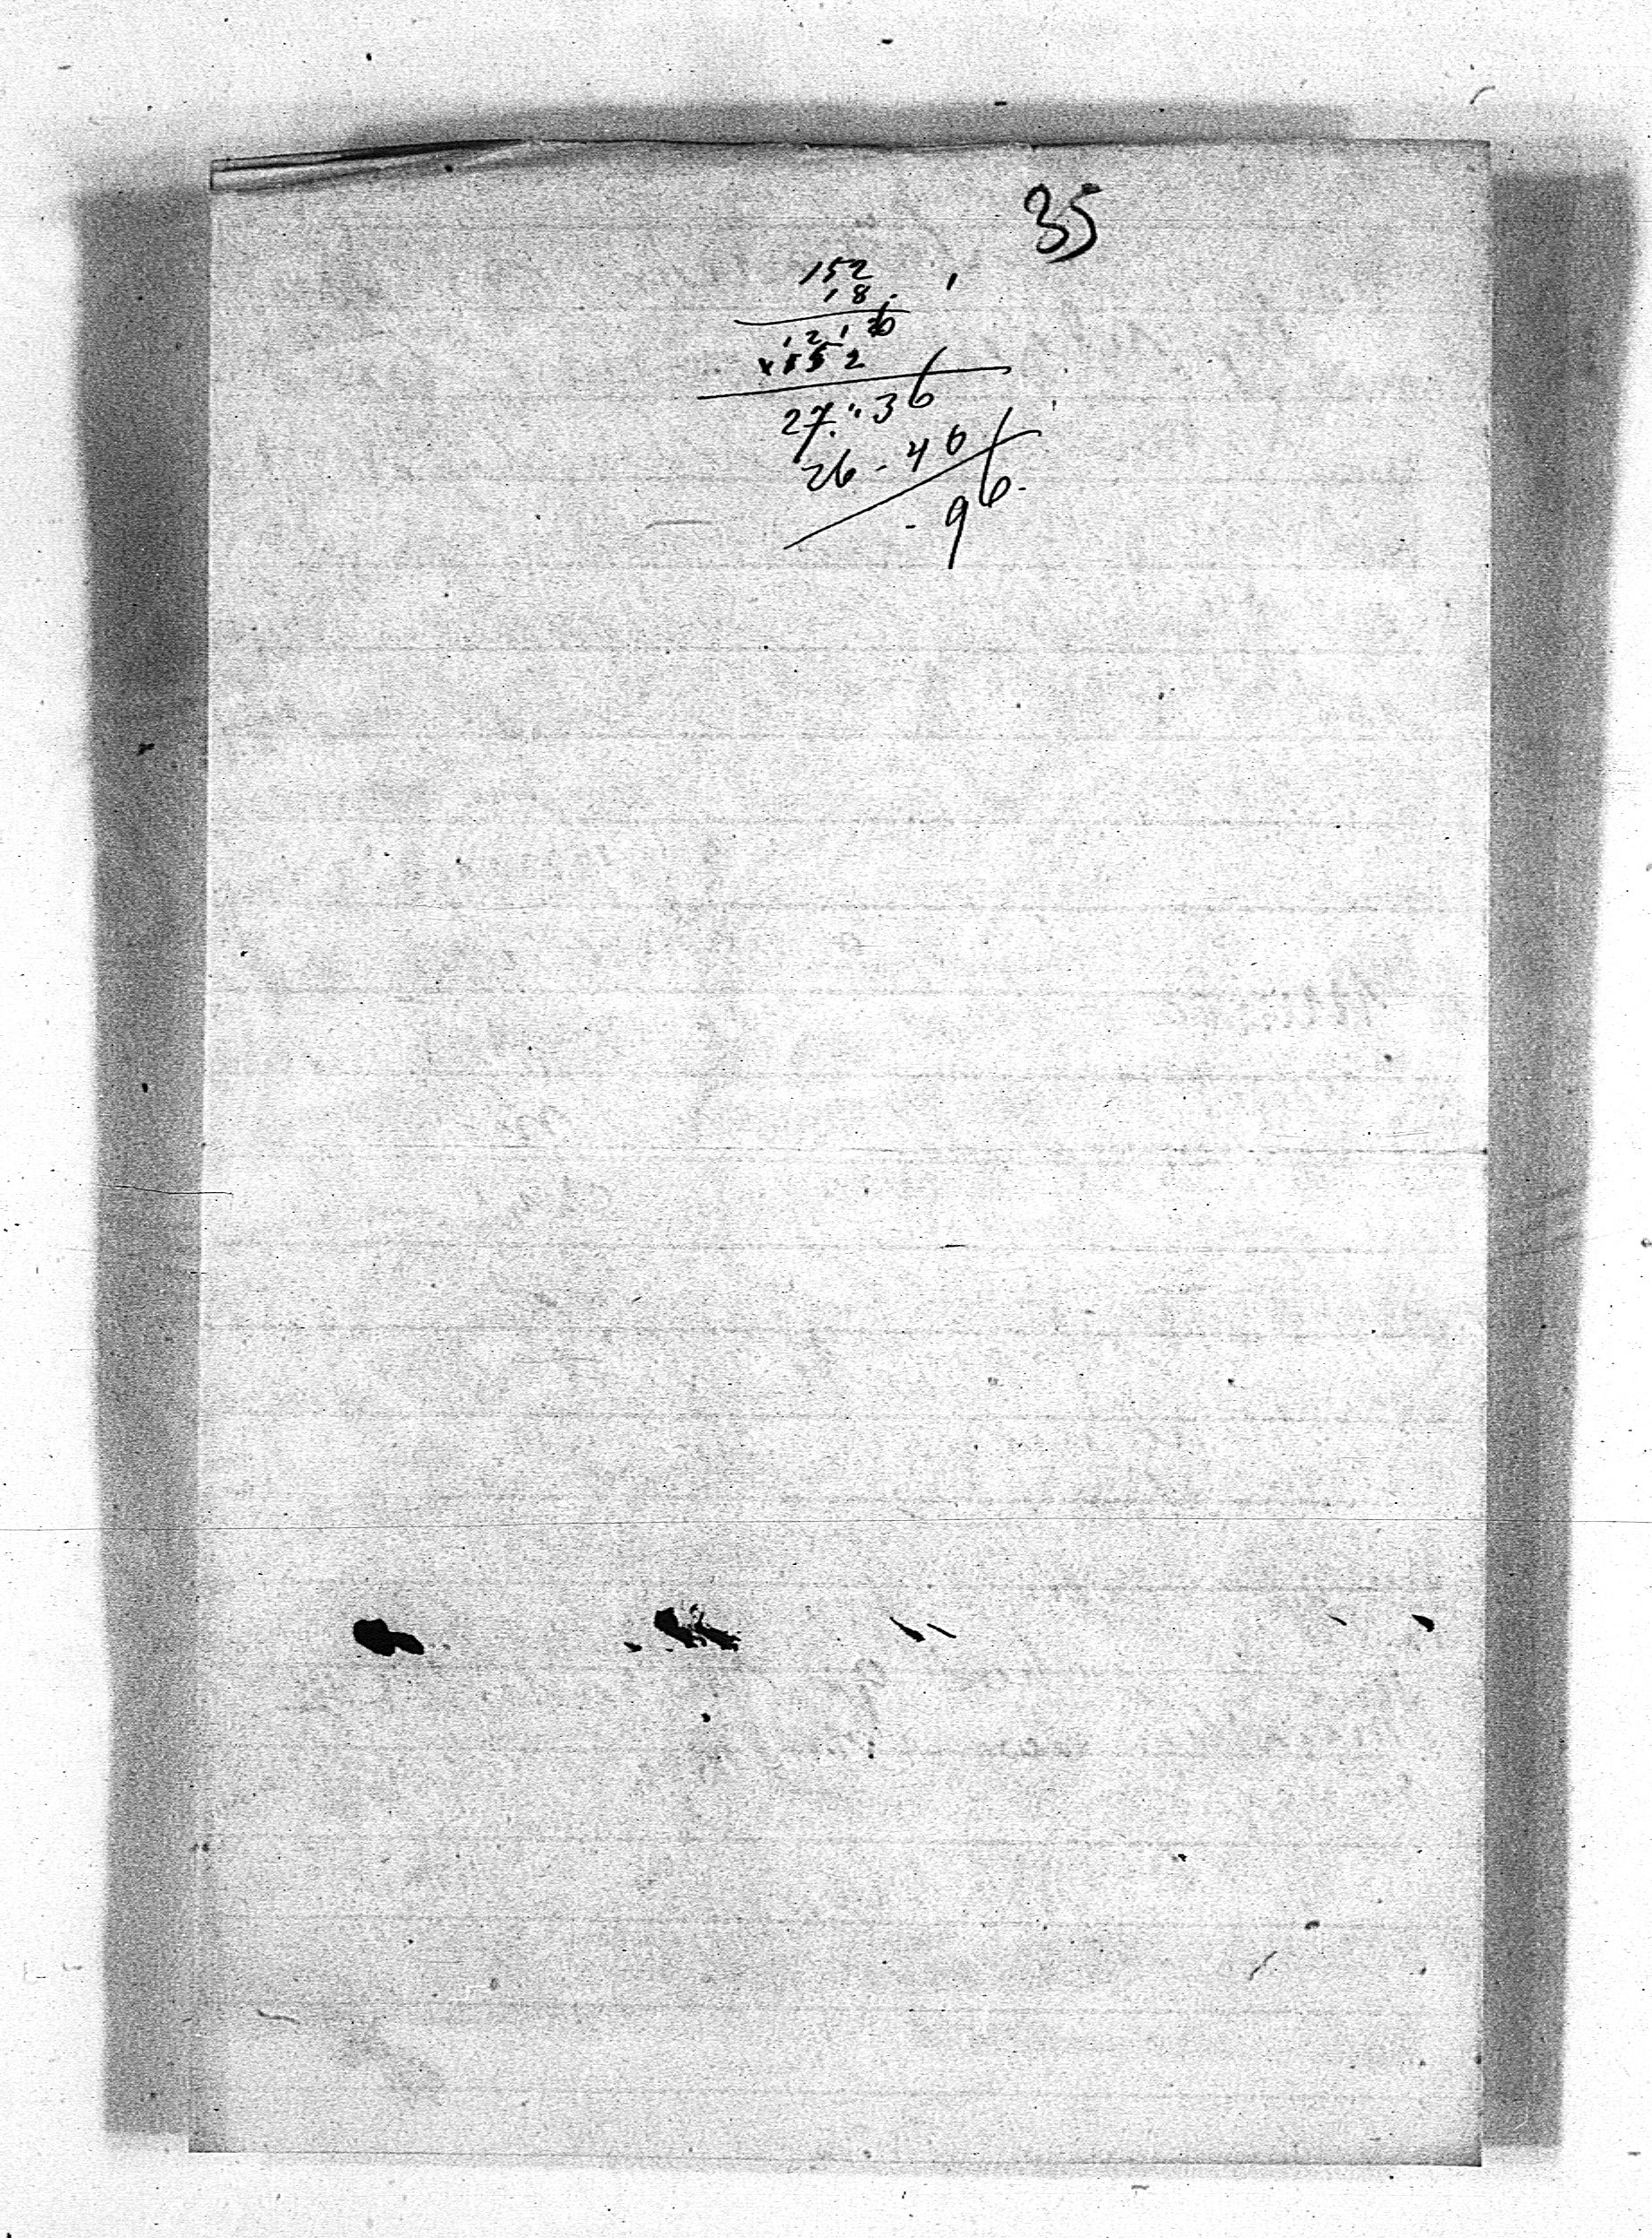 35
152
18
1216
152
27.36
26-40
-96